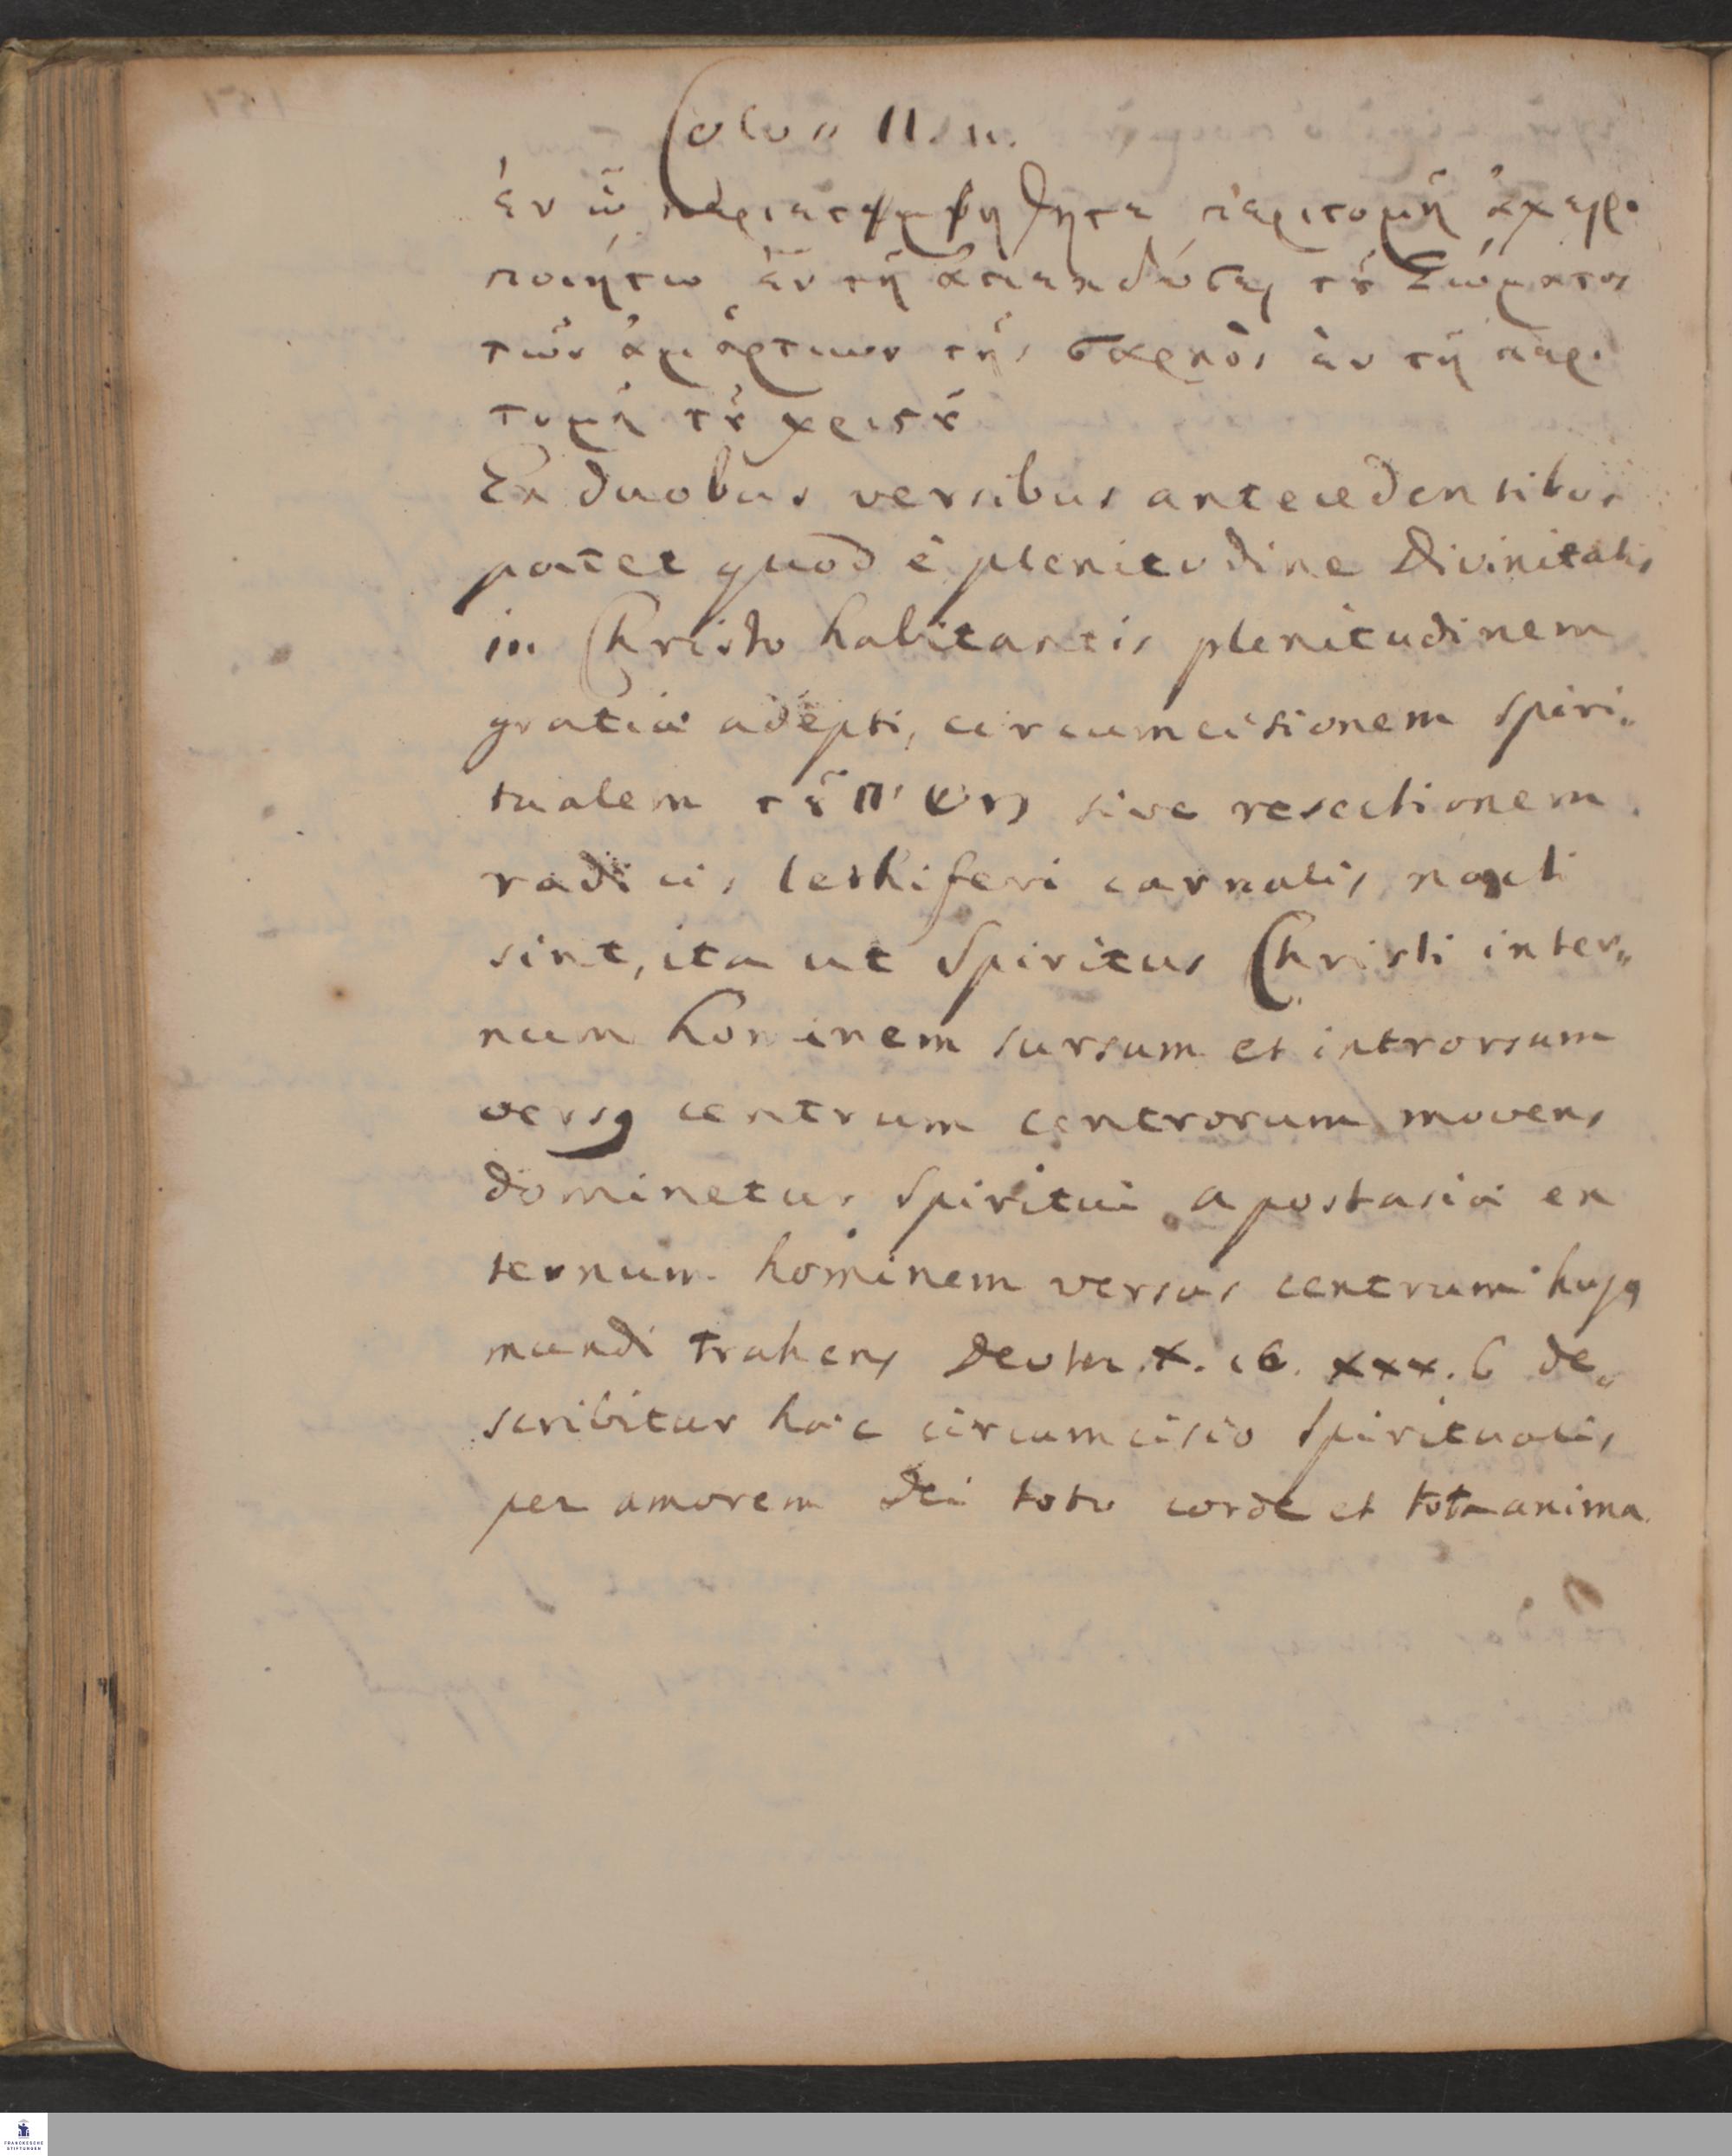 Coloss II. 11.
ἐν ᾧ περιετμήθητε περιτομῇ ἀχειρο
ποιήτω ἐν τῇ ἀπεκδύσει τȣ͂ Σώματος
τῶν ἁμαρτιων τῆς σαρκὸς ἐν τῇ περι
τομῇ τȣ͂ χριστȣ͂
Ex duobus versibus antecedentibus
patet quod è plenitudine Divinitatis
in Christo habitantis plenitudinem
gratiæ adepti, circumcisionem spiri„
tualem τȣ͂ sive resectionem
radicis lethiferi carnalis nacti
sint, ita ut Spiritus Christi inter„
num hominem sursum et introrsum
versq centrum centrorum movens
dominetur Spiritui apostasiæ ex
ternum hominem versus centrum hujq
mundi trahens Deuter. X. 16. XXX. 6 de„
scribitur hæc circumcisio Spiritualis
per amorem dei toto corde et tota anima.
FRANCKESCHE
STIFTUNGEN